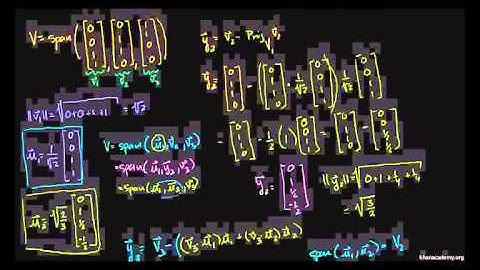 V = span([0 0 1 1], [0 1 1 0], [1 1 0 0])
v₁ v₂ v₃
||v₁|| = √0+0+1+1 = √2
u₁ = 1/√2 [0 0 1 1]
V = span(u₁, v₂, v₃)
= span(u₁, y₂, v₃)
= span(u₁, u₂, v₃)
u₂ = √2/3 [0 1 1/2 -1/2]
y₂ = v₂ - Proj
y₂ = [0 1 1 0] - ([0 1 1 0] · 1/√2 [0 0 1 1]) 1/√2 [0 0 1 1]
= [0 1 1 0] - 1/2 (1) [0 0 1 1] = [0 1 1 0] - [0 0 1/2 1/2]
y₂ = [0 1 1/2 -1/2]
||y₂|| = √0+1+1/4+1/4
= √3/2
y₃ = v₃ - ((v₃·u₁)u₁ + (v₃·u₂)u₂)
span(u₁, u₂) = V₂
khanacademy.org